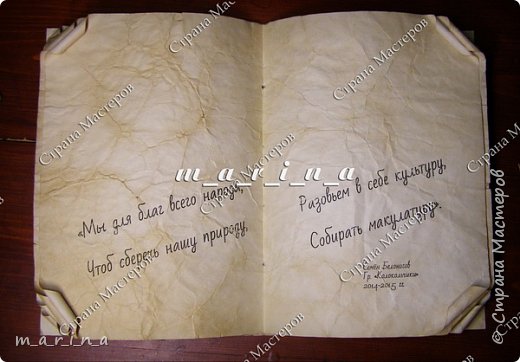 «Мы для благ всего народа,
Чтоб сберечь нашу природу,
Разовьем в себе культуру,
Собирать макулатуру».
Белоногов
Гр. «Колокольчики»
2014-2015 г.
m_a_r_i_n_a
m a r i n a
Страна Мастеров
Страна Мастеров
Страна Мастеров
Страна Мастеров
Страна Мастеров
Страна Мастеров
Страна Мастеров
© Страна Мастеров